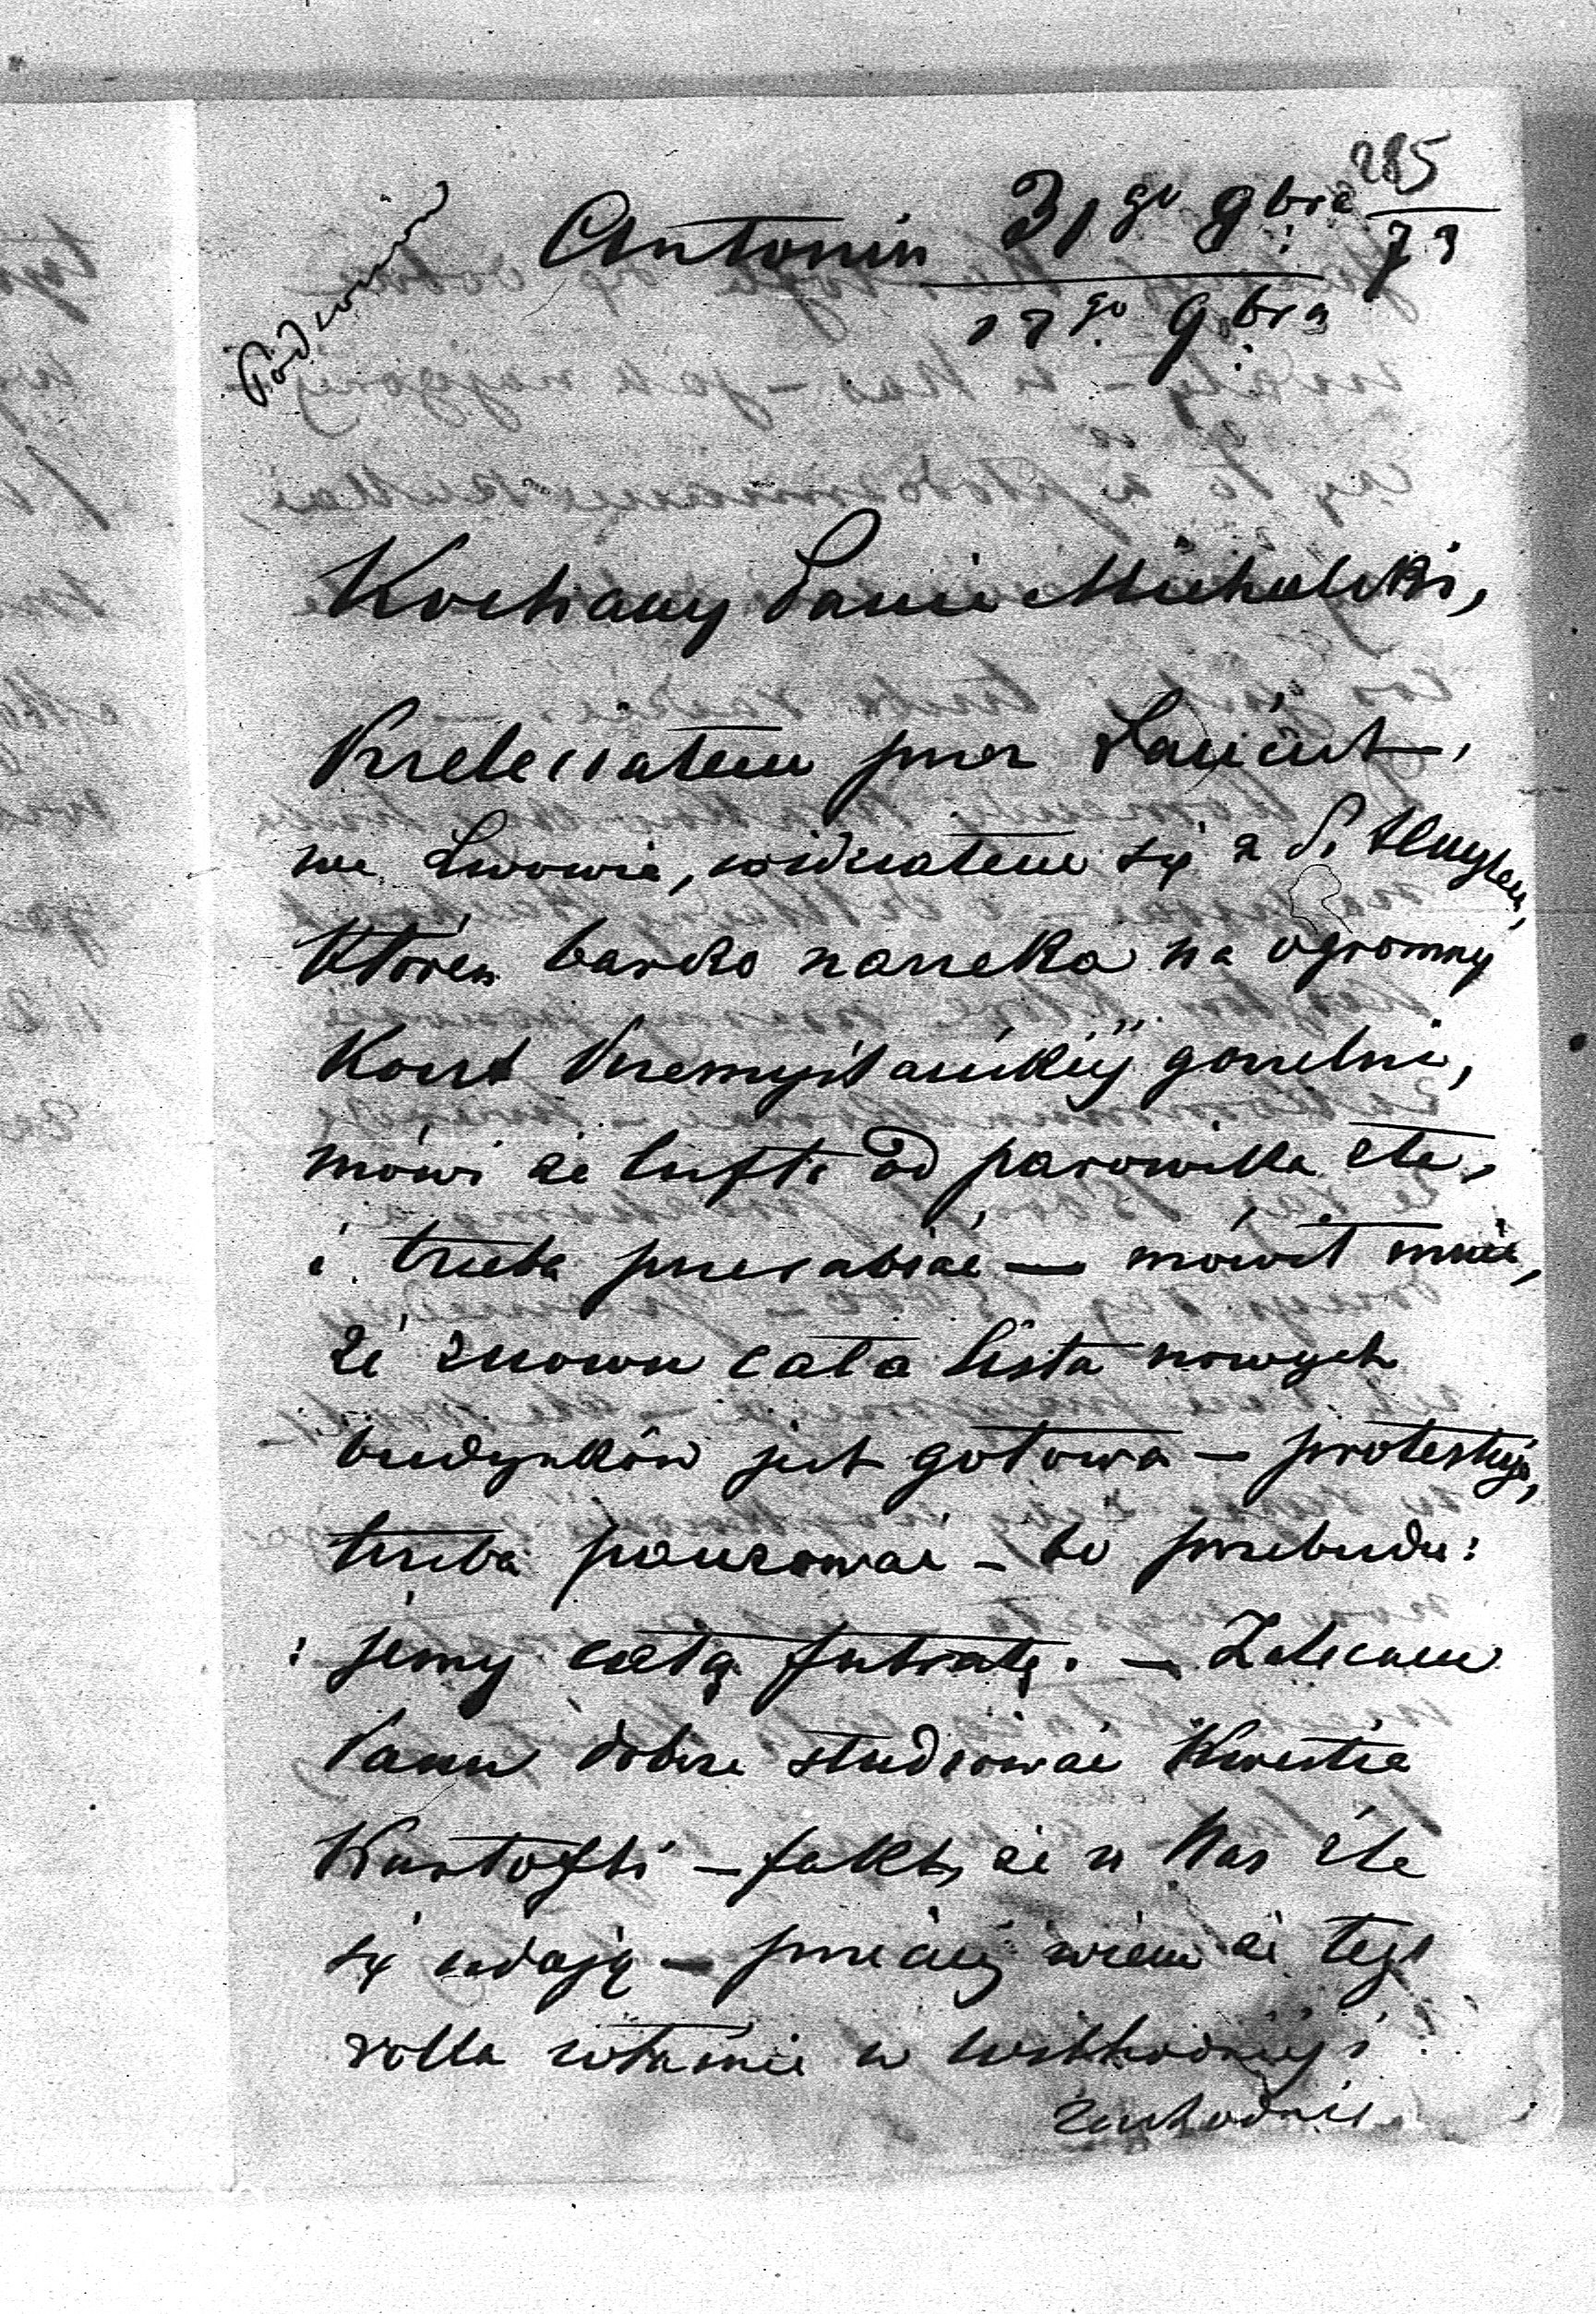 285
Antonin 31go 9bra 73
17go 9bra
Kochany Panie Michalski,
Przeleciałem przez Łańcut,
we Lwowie, widziałem się z P.
Któren barzo narzeka na ogromny
Koszt Przemyślańskiej gorzelni,
mówi że lufti od parowika złe,
i trzeba przerabiać — mówił mnie,
że znowu cała lista nowych
budynków jest gotowa — protestuję,
trzeba pauzować — bo przebudu:
:jemy całą intratę. — Zalecam
Panu dobrze studiować Kwestie
Kartofli — fakt, że u Nas źle
się udają — przeciej wiem że tego
rolla właśnie w wschodniej i
zachodniej